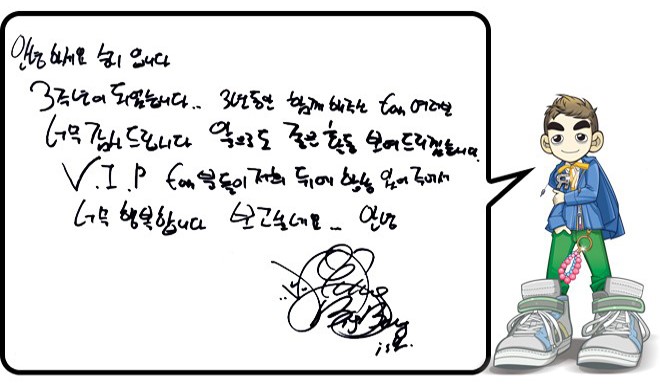 안녕하세요 승리 입니다
3주년이 되었습니다.. 3년동안 함께 해주는 fan 여러분
너무 감사드립니다 앞으로도 좋은 활동 보여드리겠습니다.
V.I.P fan 분들이 저희 뒤에 항상 있어주셔서
너무 행복합니다 보고싶네요... 안녕
Big Bang
is V.I